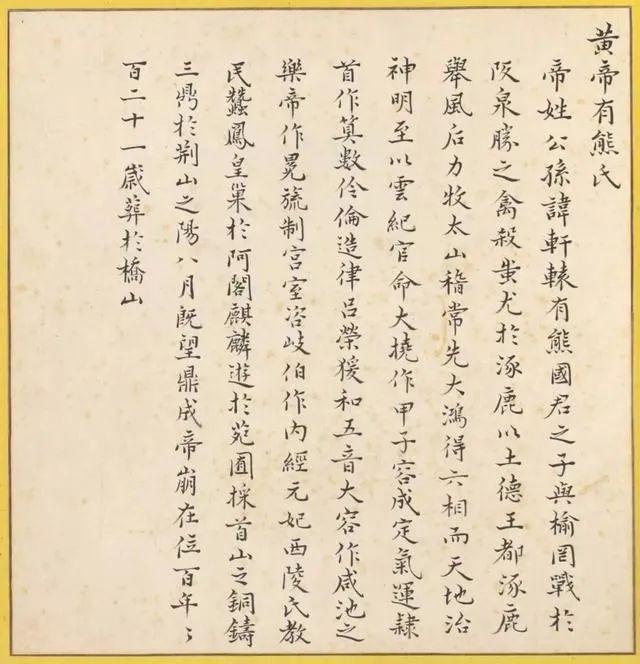 黃帝有熊氏
帝姓公孫諱軒轅有熊國君之子與榆罔戰於
阪泉勝之禽殺蚩尤於涿鹿以土德王都涿鹿
舉風后力牧太山稽常先大鴻得六相而天地治
神明至以雲紀官命大撓作甲子容成定氣運隸
首作筭數伶倫造律呂榮猨和五音大容作咸池之
樂帝作冕旒制宮室咨岐伯作內經元妃西陵氏教
民蠶鳳皇巢於阿閣麒麟遊於苑囿採首山之銅鑄
三鼎於荆山之陽八月既望鼎成帝崩在位百年〻
百二十一歲葬於橋山